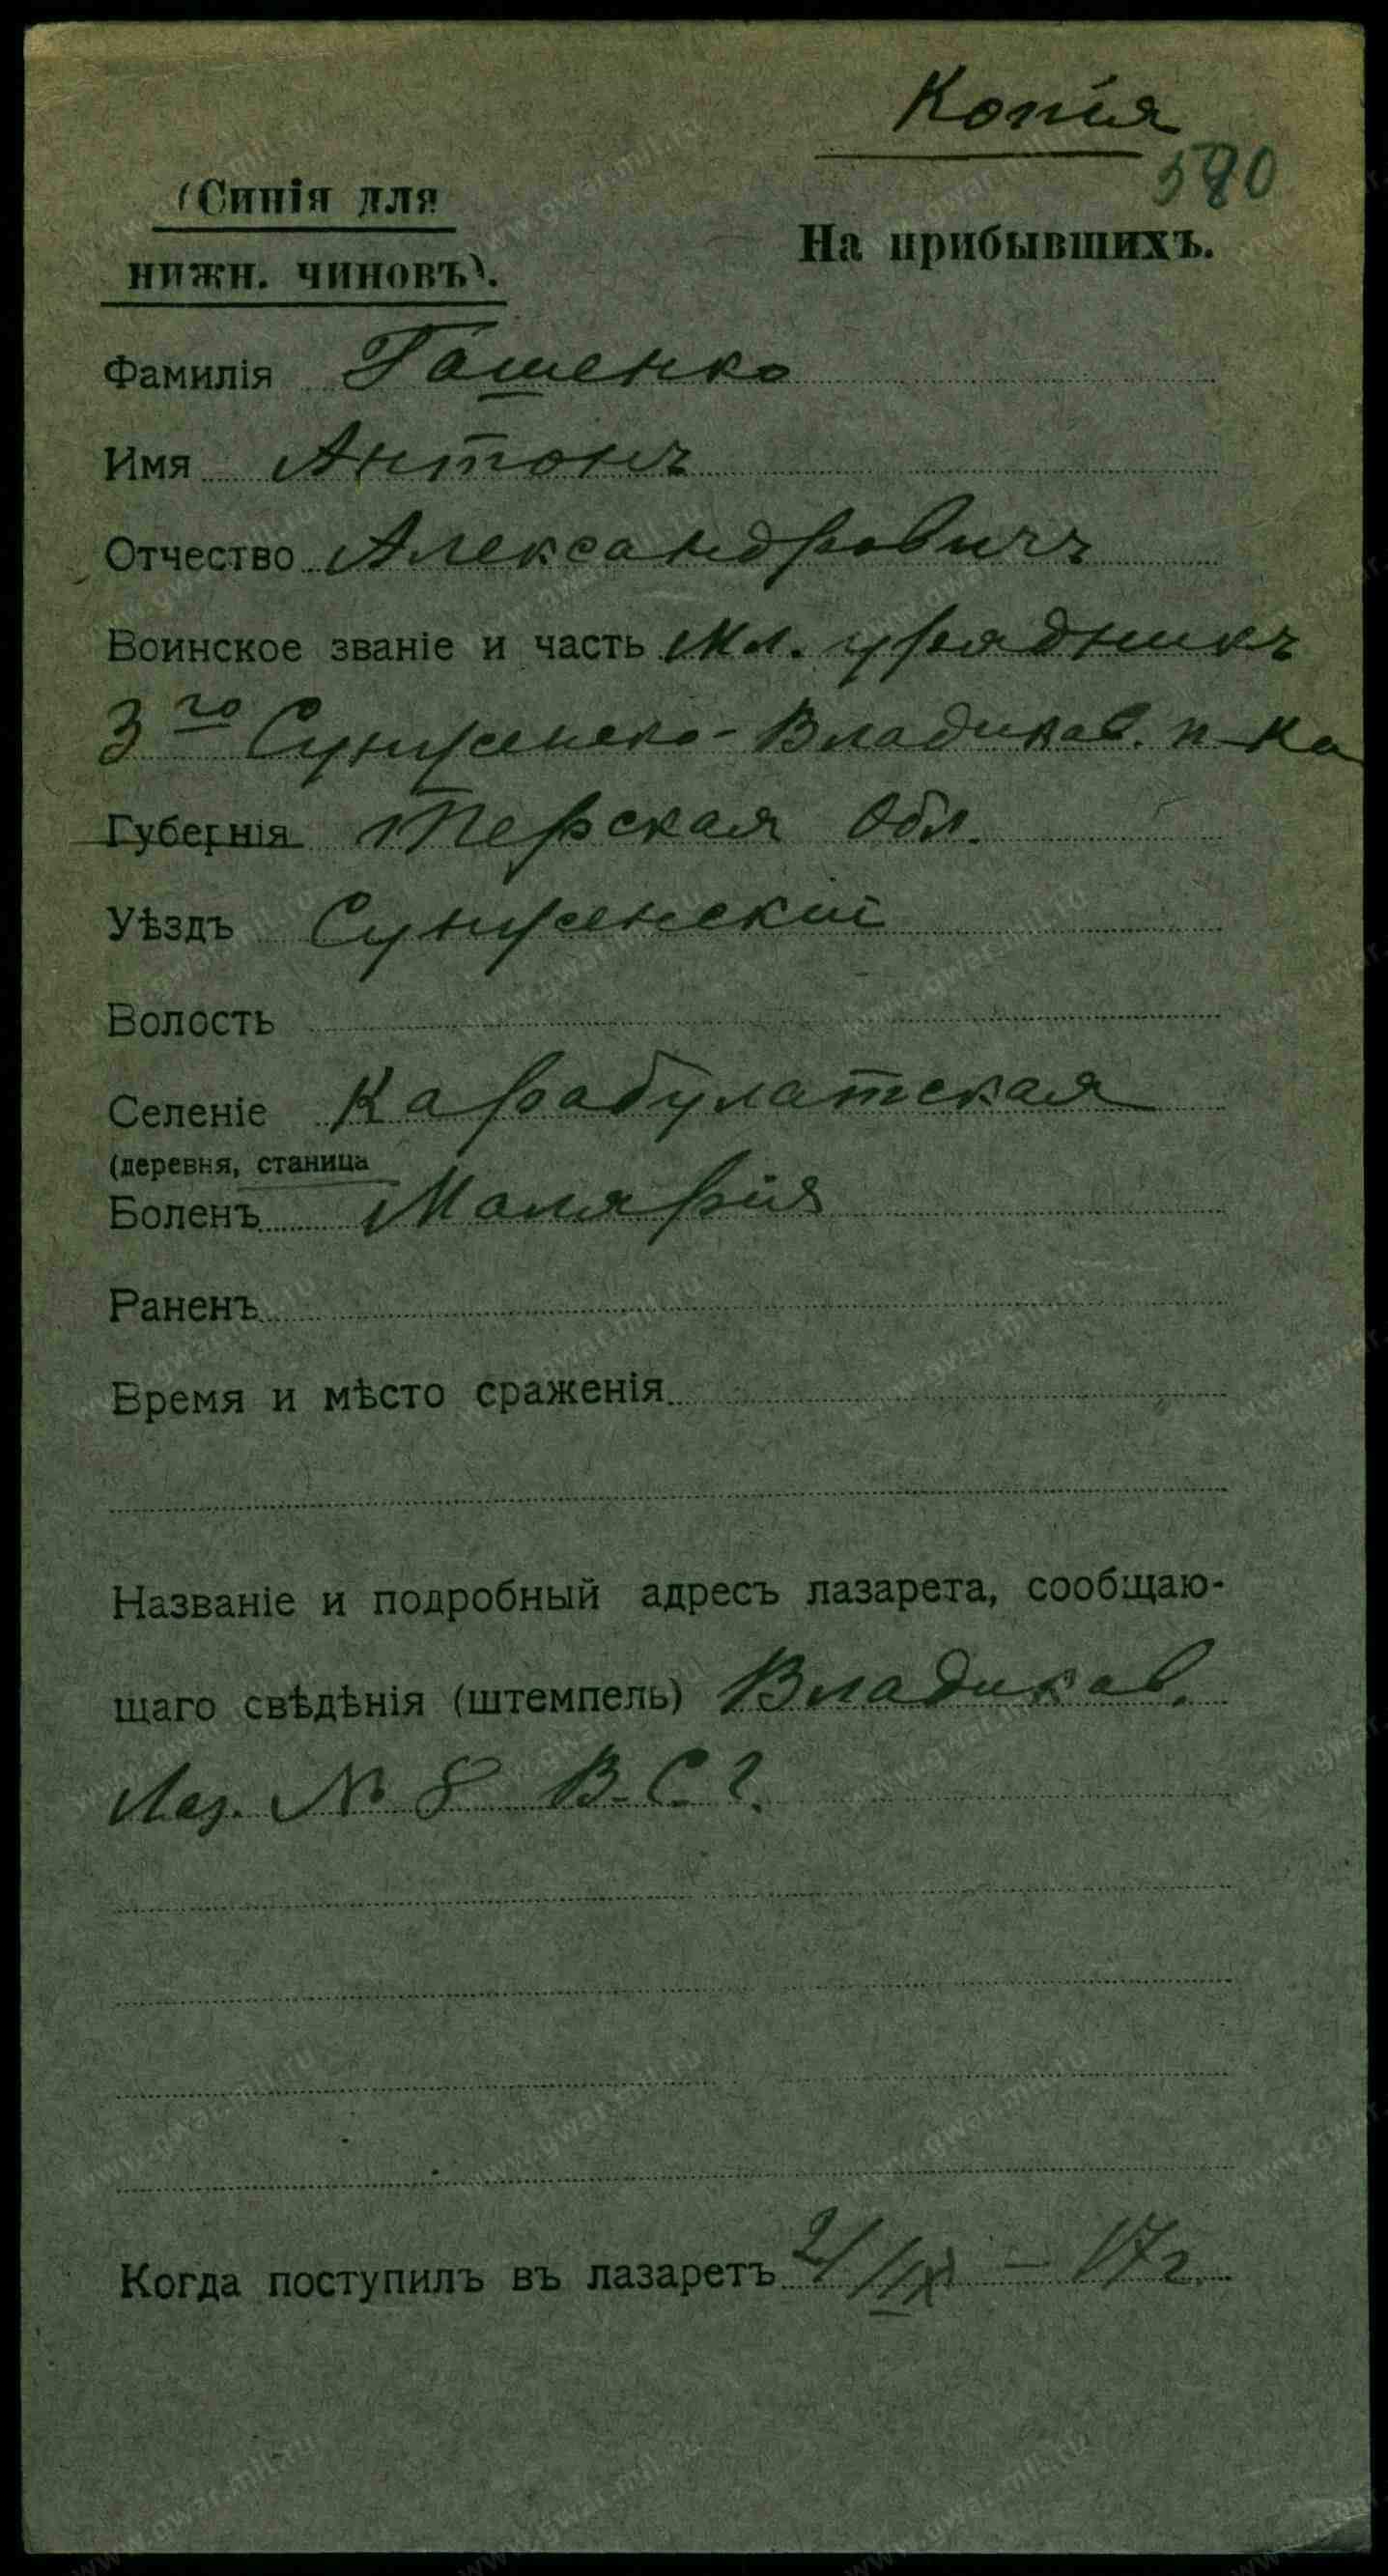 Копія
580
(Синія для
На прибывшихъ.
нижн. чиновъ).
Фамилія Гашенко
Имя Антонъ
Отчество Александровичъ
Воинское званіе и часть Мл. урядникъ
3го Сунженско-Владикав. п-ка
Губернія Терская Обл.
Уѣздъ Сунженскій
Волость
Селеніе Карабулатская
(деревня, станица
Боленъ Малярія
Раненъ
Время и мѣсто сраженія
Названіе и подробный адресъ лазарета, сообщаю-
щаго свѣдѣнія (штемпель) Владикав.
Лаз. № 8 В.С.Г.
Когда поступилъ въ лазаретъ 2/IX – 17 г.